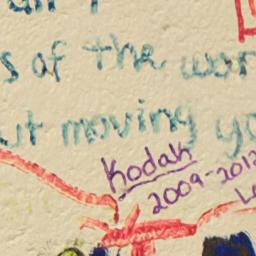 s of the wor
ut moving yo
Kodak
2009-2012